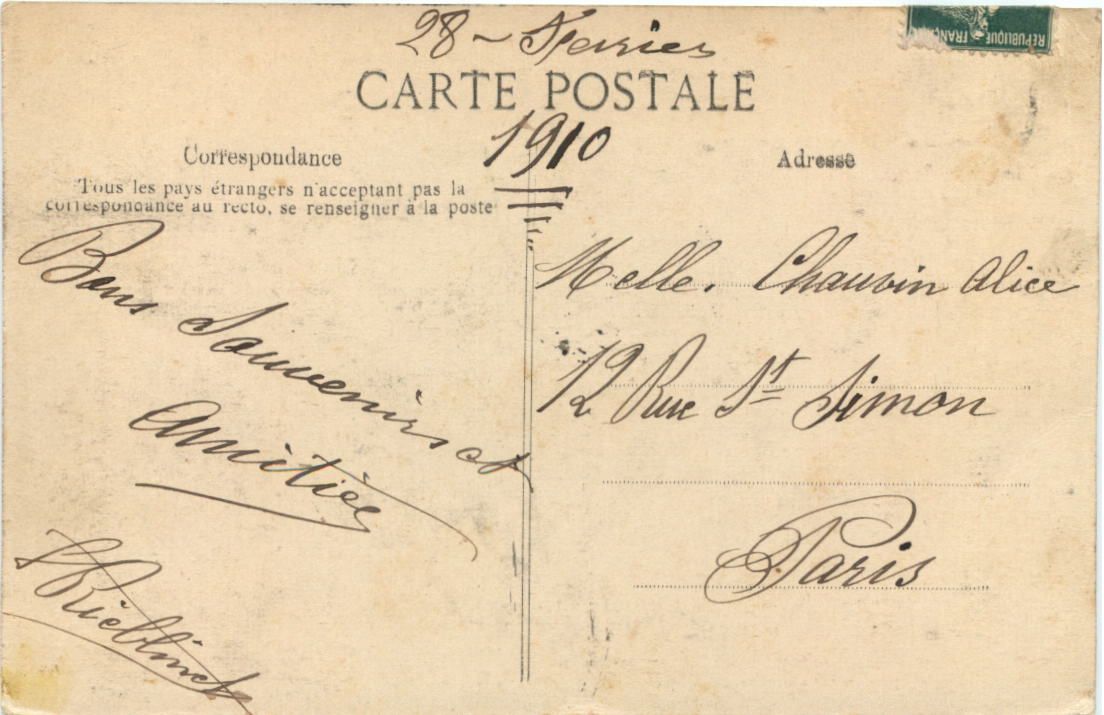 28 - Fevrier
CARTE POSTALE
1910
Correspondance
Tous les pays étrangers n'acceptant pas la
correspondance au recto, se renseigner à la poste
Bons Souvenirs et
Amitiés
Adresse
Melle. Chauvin Alice
12 Rue St Simon
Paris
REPUBLIQUE FRANÇAI